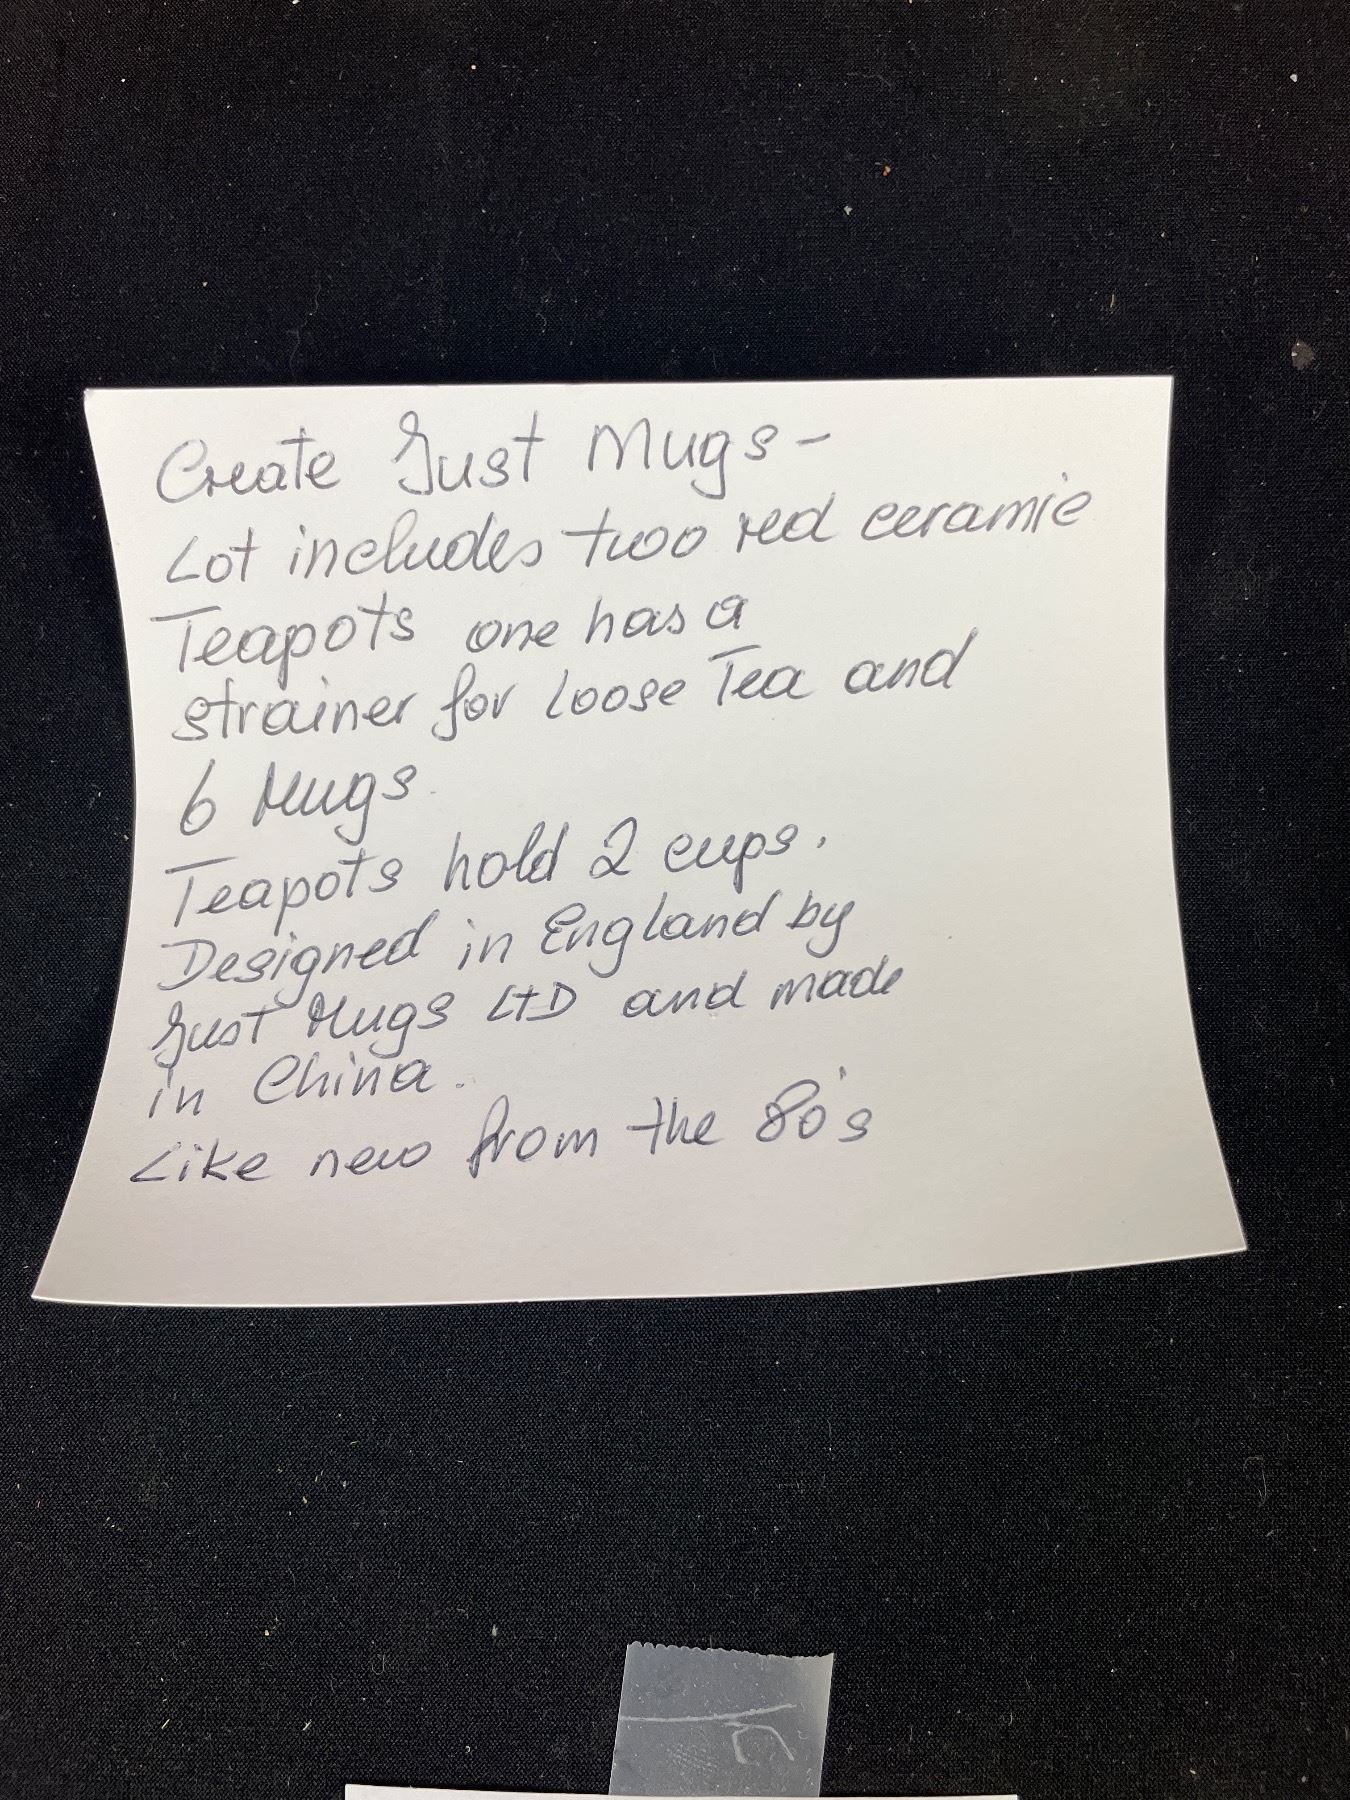 Create Just Mugs -
Lot includes two red ceramic
Teapots one has a
strainer for Loose Tea and
6 Mugs.
Teapots hold 2 cups.
Designed in England by
Just Mugs LTD and made
in China.
Like new from the 80's